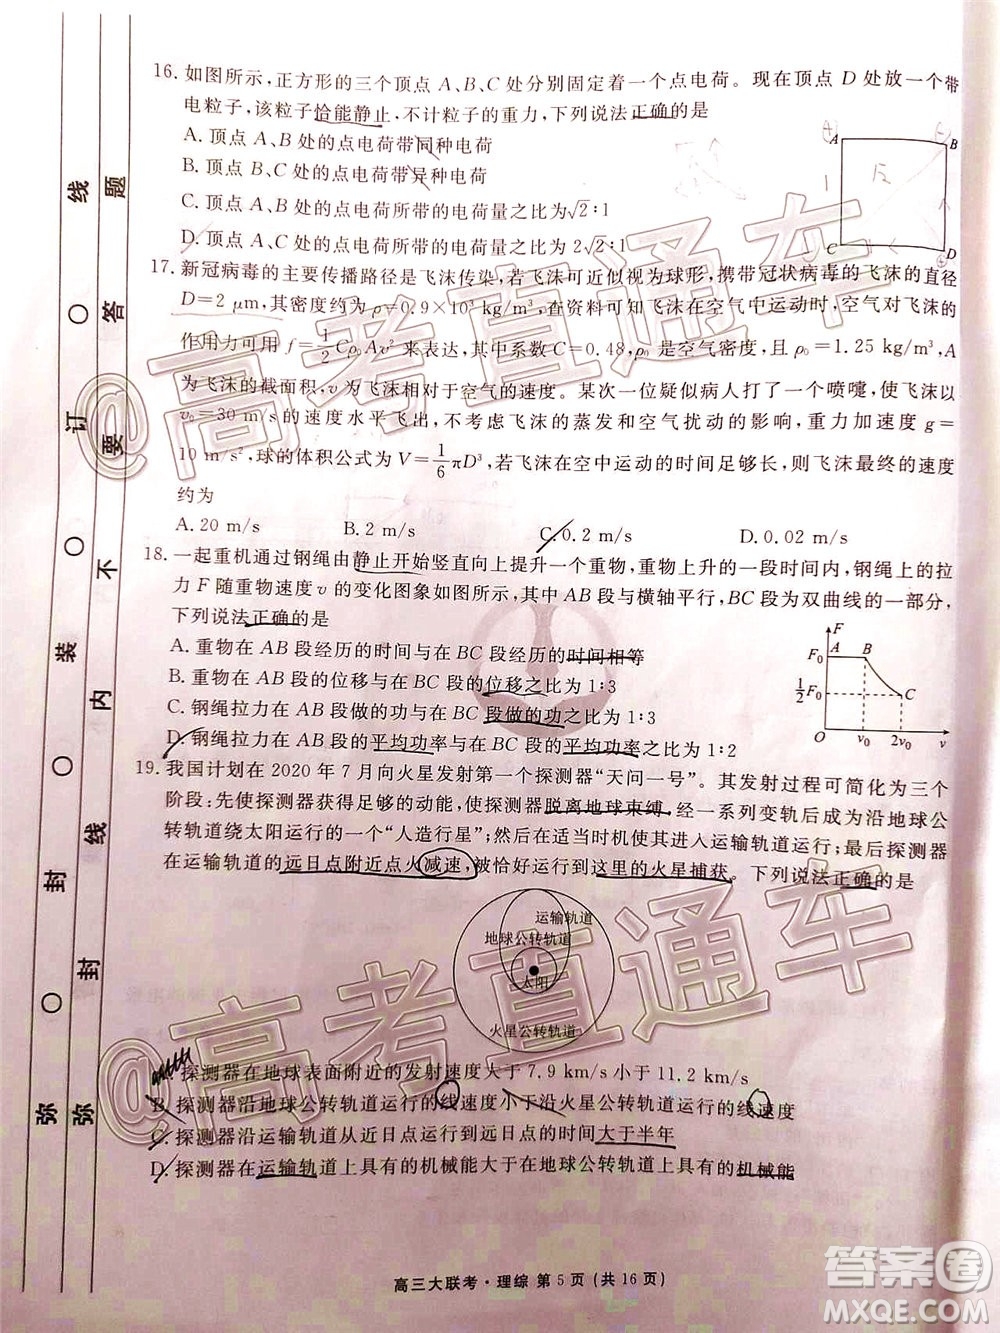 16. 如图所示，正方形的三个顶点 A、B、C 处分别固定着一个点电荷。现在顶点 D 处放一个带
电粒子，该粒子恰能静止，不计粒子的重力，下列说法正确的是
A. 顶点 A、B 处的点电荷带同种电荷
B. 顶点 B、C 处的点电荷带异种电荷
C. 顶点 B、C 处的点电荷所带的电荷量之比为√2∶1
D. 顶点 B、C 处的点电荷所带的电荷量之比为 2√2∶1
A
B
C
D
17. 新冠病毒的主要传播路径是飞沫传染，若飞沫可近似视为球形，携带冠状病毒的飞沫的直径
D=2 μm，其密度约为 ρ=0.9×10³ kg/m³，查资料可知飞沫在空气中运动时，空气对飞沫的
作用力可用 f=1/2Cρ₀Av² 来表达，其中系数 C=0.48，ρ₀ 是空气密度，且 ρ₀=1.25 kg/m³，A
为飞沫的截面积，v 为飞沫相对于空气的速度。某次一位疑似病人打了一个喷嚏，飞沫以
v₀=30 m/s 的速度水平飞出，不考虑飞沫的蒸发和空气扰动的影响，重力加速度 g=
10 m/s²，球的体积公式为 V=1/6πD³，若飞沫在空中运动的时间足够长，则飞沫最终的速度
约为
A. 20 m/s B. 2 m/s C. 0.2 m/s D. 0.02 m/s
18. 一起重机通过钢绳由静止开始竖直向上提升一个重物，重物上升的一段时间内，钢绳上的拉
力 F 随重物速度 v 的变化图象如图所示，图中 AB 段与横轴平行，BC 段为双曲线的一部分，
下列说法正确的是
A. 重物在 AB 段经历的时间与在 BC 段经历的时间相等
B. 重物在 AB 段的位移与在 BC 段的位移之比为 1∶3
C. 钢绳拉力在 AB 段做的功与在 BC 段做的功之比为 1∶3
D. 钢绳拉力在 AB 段的平均功率与在 BC 段的平均功率之比为 1∶2
F
F₀ A B
1/2F₀ C
O v₀ 2v₀ v
19. 我国计划在 2020 年 7 月向火星发射第一个探测器“天问一号”。其发射过程可简化为三个
阶段：先使探测器获得足够的动能，使探测器脱离地球束缚，经一系列变轨后成为沿地球公
转轨道绕太阳运行的一个“人造行星”；然后在适当时机使其进入运输轨道运行；最后探测器
在运输轨道的远日点附近点火减速，被恰好运行到这里的火星捕获。下列说法正确的是
运输轨道
地球公转轨道
太阳
火星公转轨道
A. 探测器在地球表面附近的发射速度大于 7.9 km/s 小于 11.2 km/s
B. 探测器沿地球公转轨道运行的线速度小于沿火星公转轨道运行的线速度
C. 探测器沿运输轨道从近日点运行到远日点的时间大于半年
D. 探测器在运输轨道上具有的机械能大于在地球公转轨道上具有的机械能
高三大联考·理综 第 5 页（共 16 页）
弥 ○ 封 ○ 装 ○ 订 ○ 线
弥 封 线 内 不 要 答 题
@高考直通车
@高考直通车
答案圈
MXQE.COM